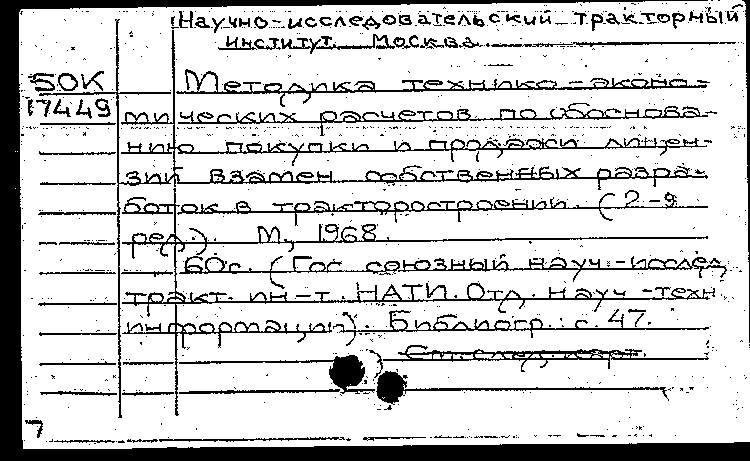 Научно-исследовательский тракторный
институт. Москва.
50К
17449
Методика технико-эконо-
мических расчетов по обоснова-
нию покупки и продажи лицен-
зий взамен собственных разра-
боток в тракторостроении. (2-я
ред.). М., 1968.
60с. (Гос. союзный науч.-исслед.
тракт. ин-т. НАТИ. Отд. науч.-техн.
информации). Библиогр.: с. 47.
См. след. карт.
7